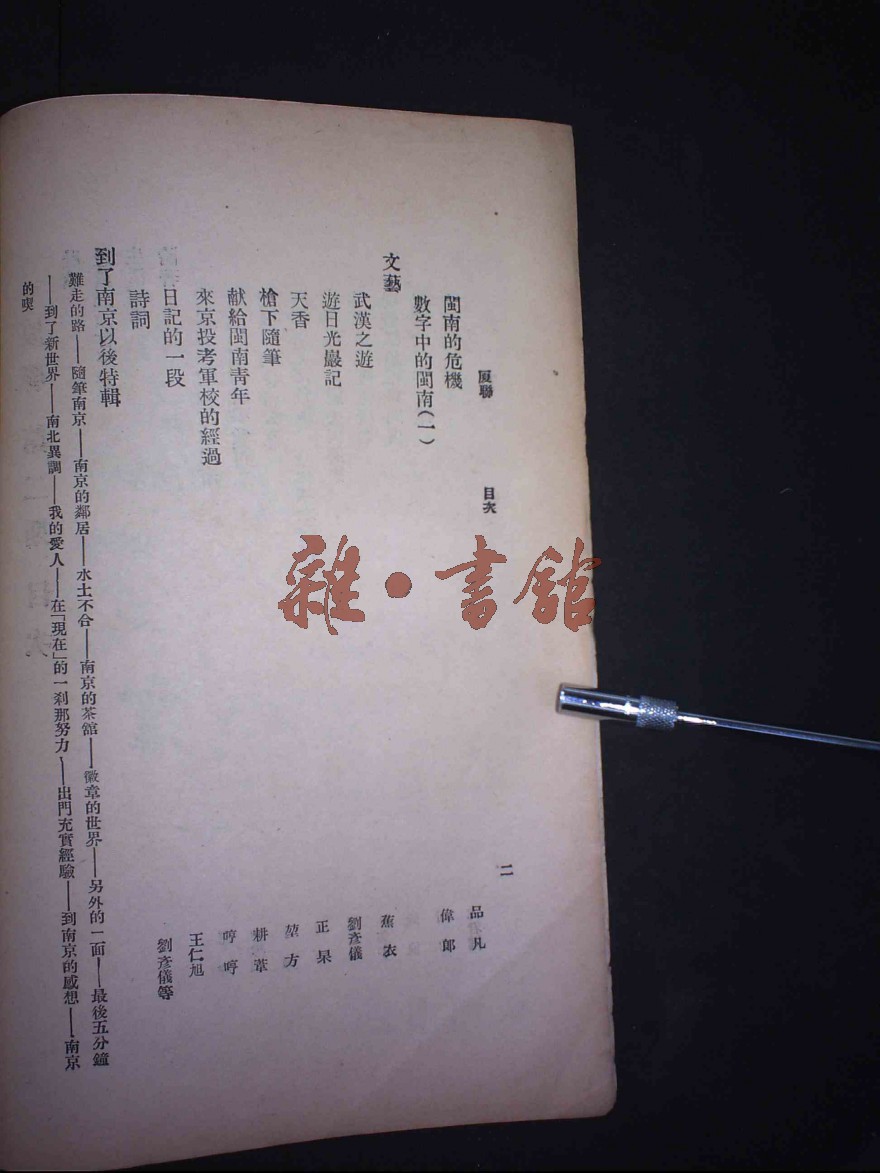 厦聯 目次 二
閩南的危機 品凡
數字中的閩南(一) 偉郎
文藝
武漢之遊 蕉衣
遊日光巖記 劉彥儀
天香 正杲
槍下隨筆 堃方
献給閩南青年 耕葦
來京投考軍校的經過 哼哼
日記的一段 王仁旭
詩詞 劉彥儀等
到了南京以後特輯
難走的路——隨筆南京——南京的鄰居——水土不合——南京的茶舘——徽章的世界——另外的一面——最後五分鐘
——到了新世界——南北異調——我的愛人——在「現在」的一剎那努力——出門充實經驗——到南京的感想——南京
的喫
雜·書舘